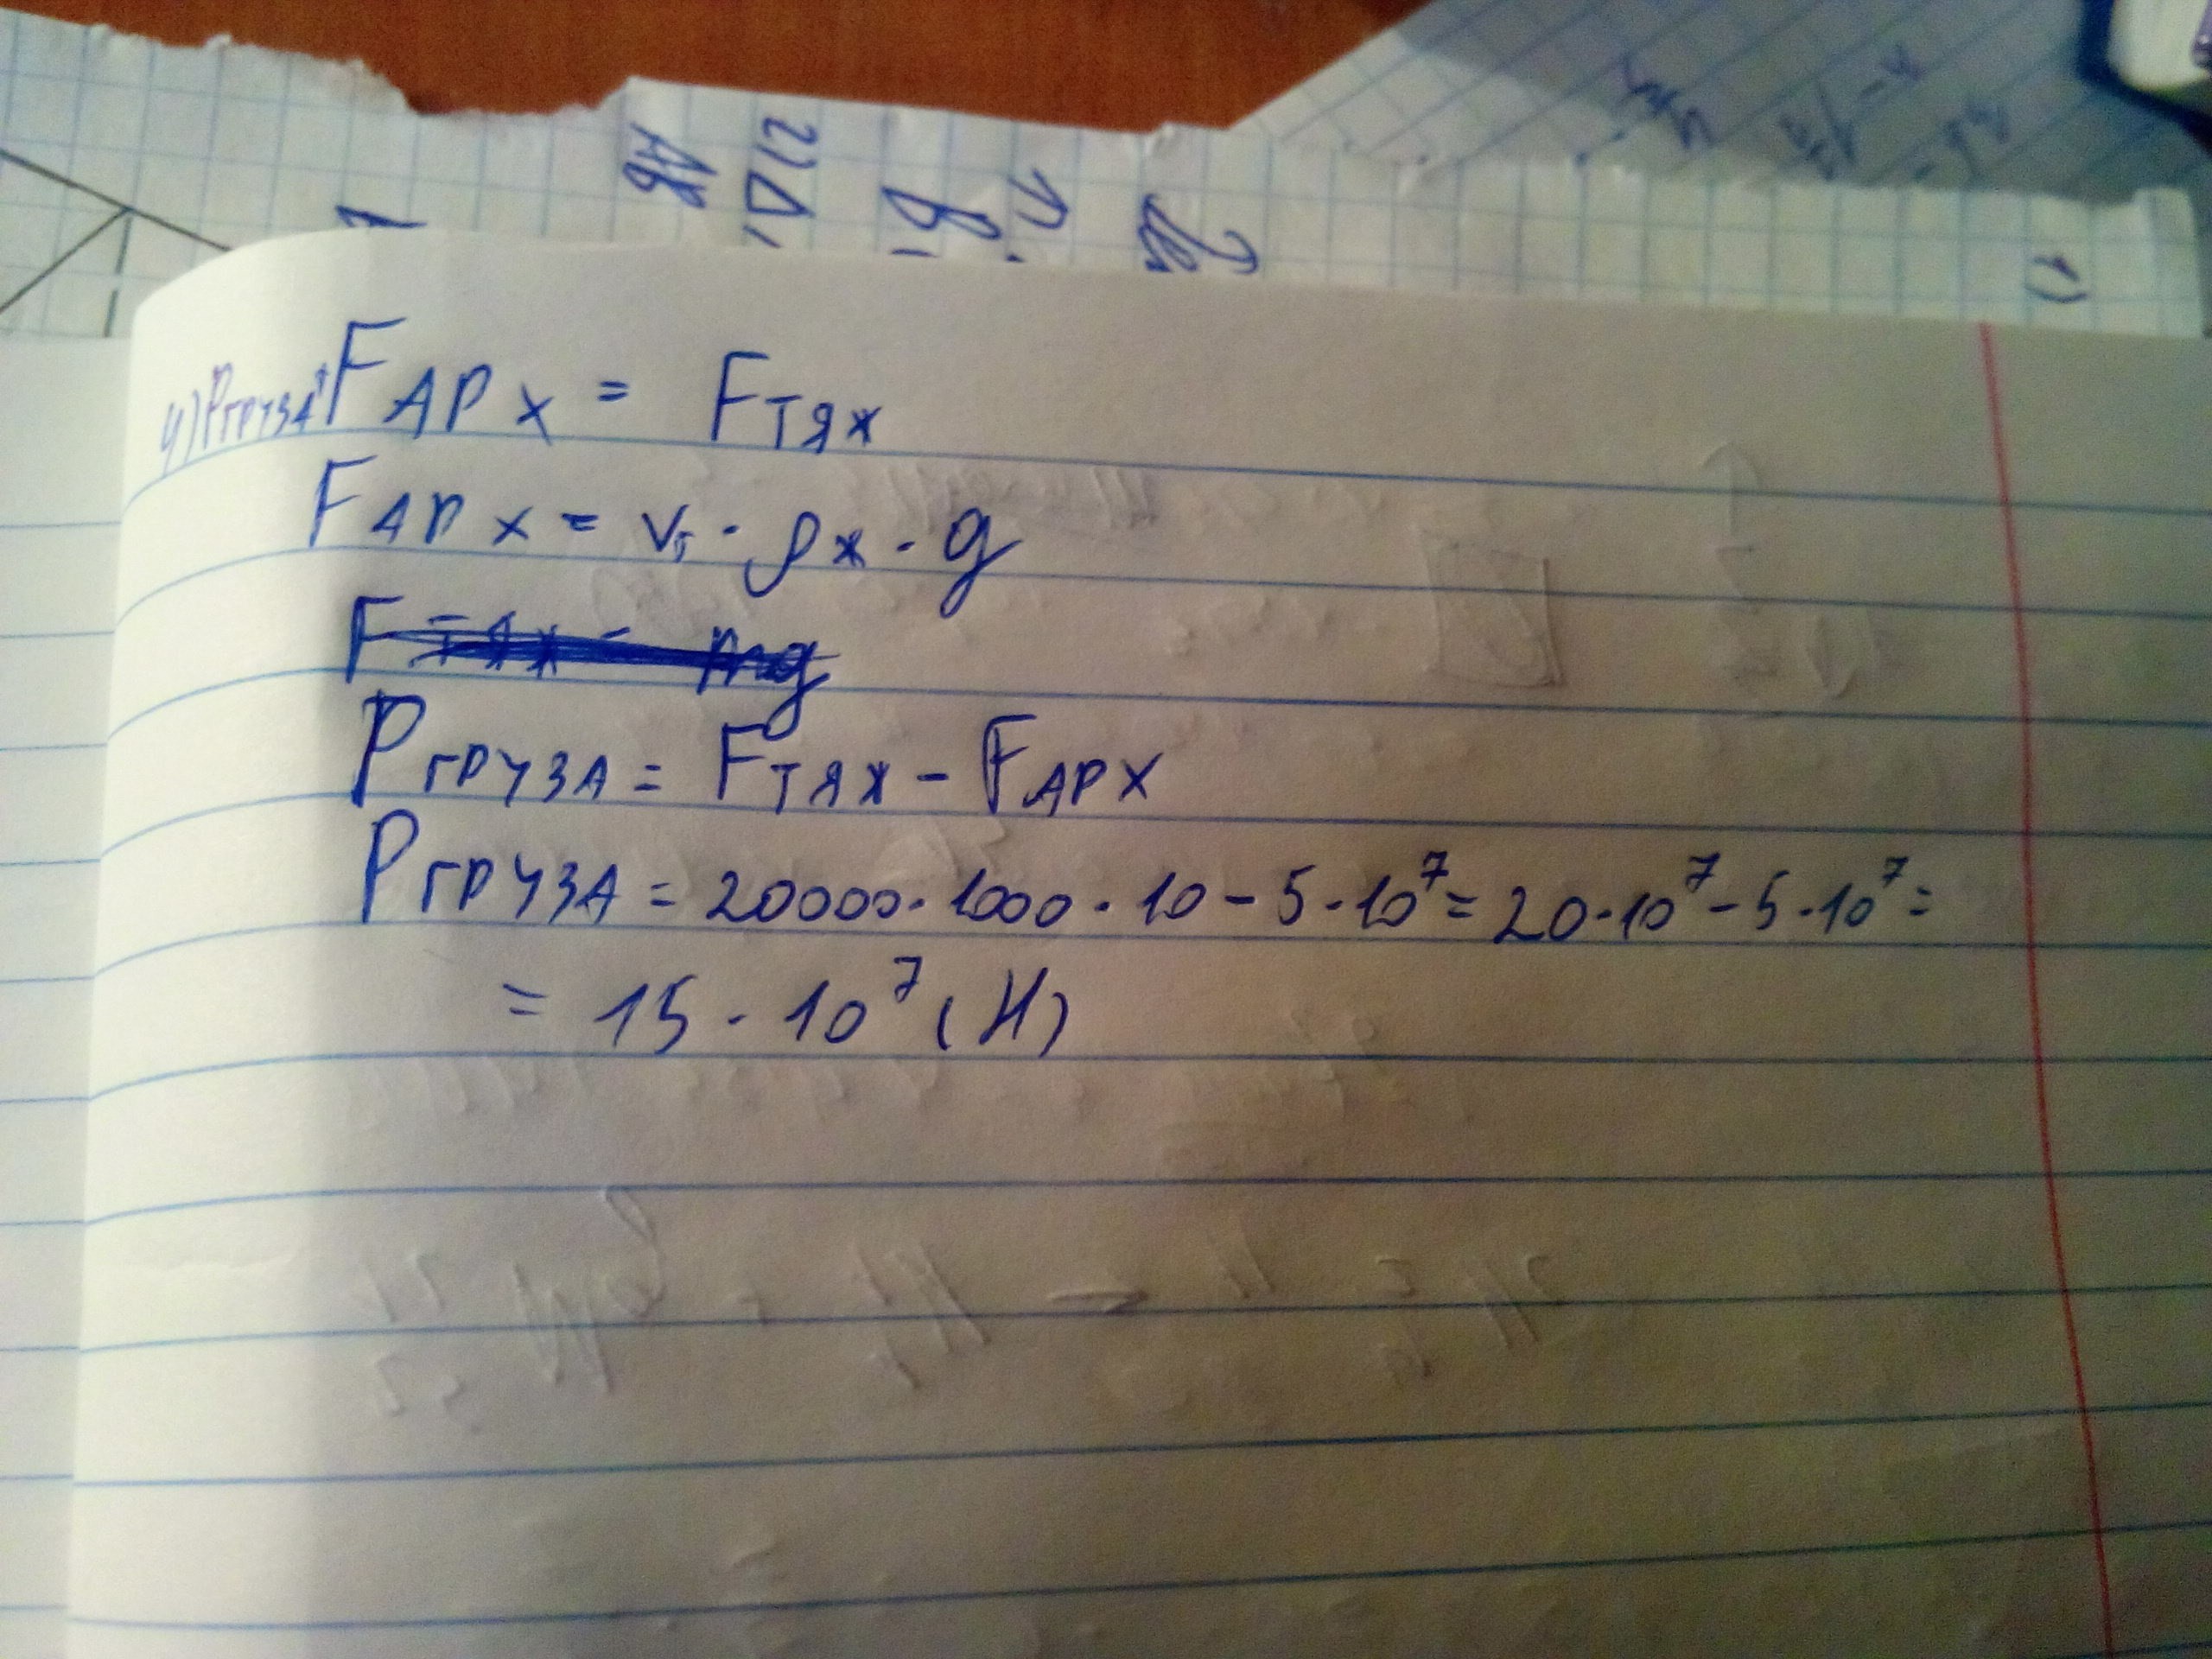 2) Δ
АВ
4) Pгруза + Fарх = Fтяж
Fарх = Vт · ρж · g
Fтяж = mg
Pгруза = Fтяж - Fарх
Pгруза = 20000 · 1000 · 10 - 5 · 10⁷ = 20 · 10⁷ - 5 · 10⁷ =
= 15 · 10⁷ (Н)